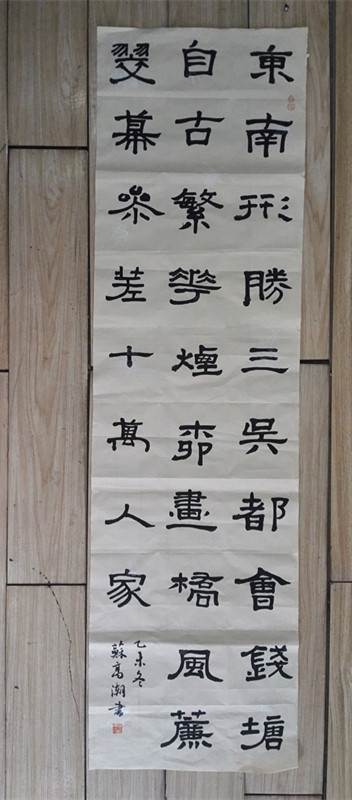 東南形勝三吳都會錢塘
自古繁華煙柳畫橋風簾
翠幕參差十萬人家
乙未冬
蘇高潮書